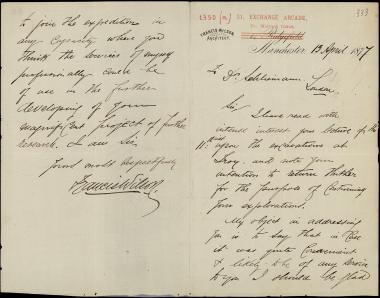 1350 31, EXCHANGE ARCADE,
333
FRANCIS WILSON
ARCHITECT.
Manchester 13 April 1877
To Dr. Schliemann
London
Sir
I have read with
intense interest your lecture of the
11th inst upon the excavations at
Troy. and note your
intention to return thither
for the purpose of continuing
your explorations.
My object in addressing
you is to say that in case
it was quite convenient
& likely to be of any service
to you I should be glad
to join the expedition in
any capacity where you
think the services of anyone
professionally could be
of use in the further
developing of your
magnificent project of further
research. I am Sir
Yours most respectfully
Francis Wilson